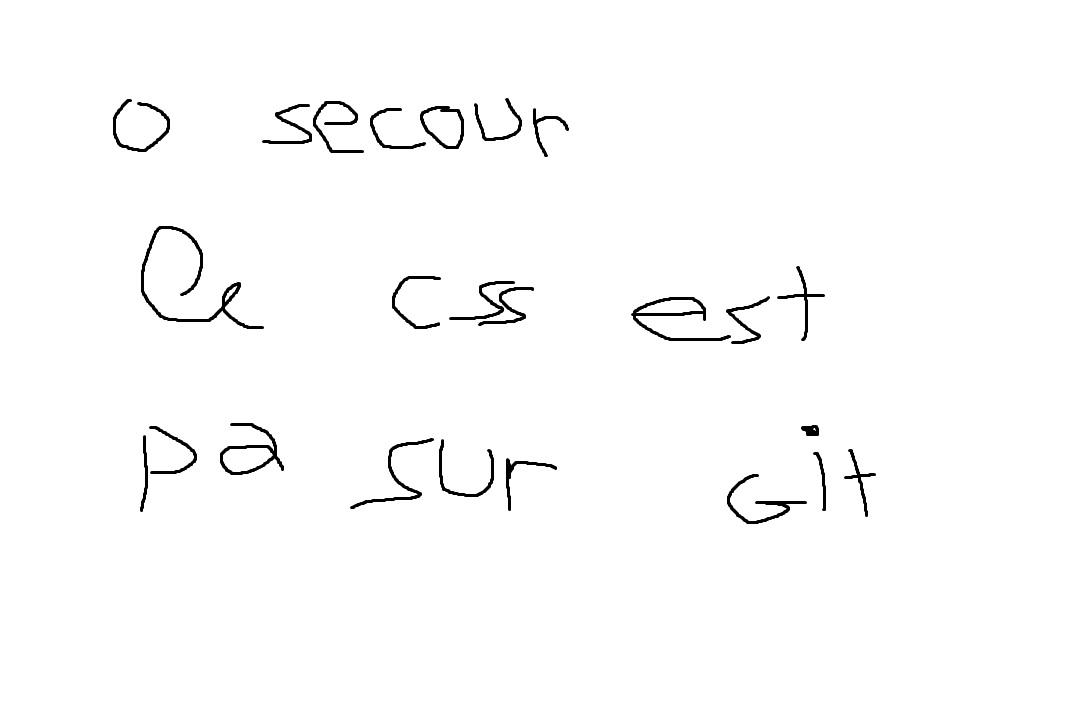 o secour
le css est
pa sur Git